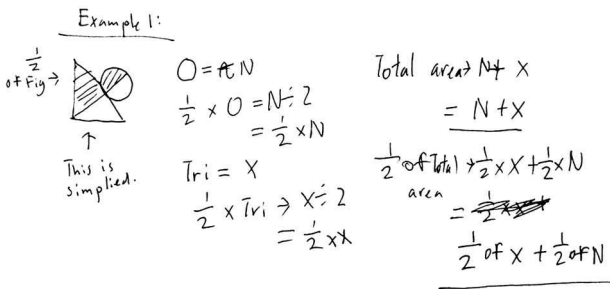 Example 1:
1/2
of Fig →
↑
This is
simplied.
O = N
1/2 × O = N ÷ 2
= 1/2 × N
Tri = X
1/2 × Tri → X ÷ 2
= 1/2 × X
Total area → N + X
= N + X
1/2 of Total → 1/2 × X + 1/2 × N
area
=
1/2 of X + 1/2 of N